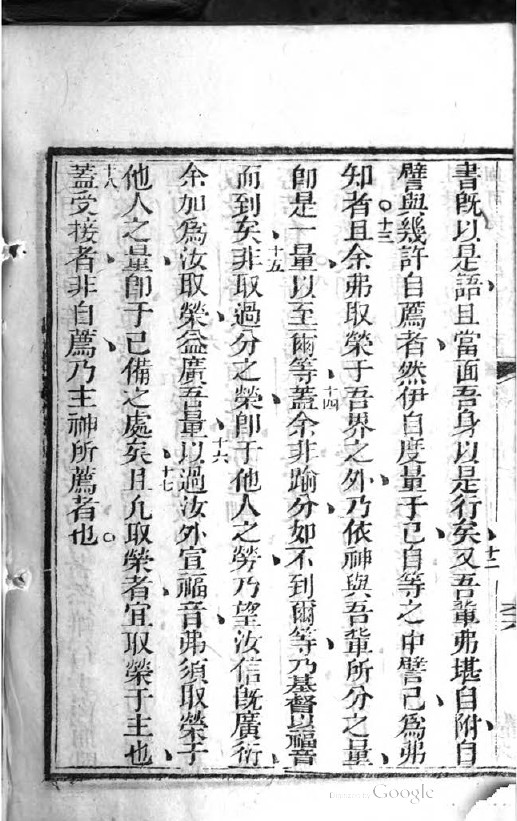 書旣以是語且當面吾身以是行矣十二又吾輩弗堪自附自
譬與幾許自薦者然伊自度量于己自等之中譬己爲弗
知者十三且余弗取榮于吾界之外乃依神與吾輩所分之量
卽是一量以至爾等十四蓋余非踰分如不到爾等乃基督以福音
而到矣十五非取過分之榮卽于他人之勞乃望汝信旣廣衍
余加爲汝取榮益廣吾量十六以過汝外宣福音弗須取榮于
他人之量卽于己備之處矣十七且凢取榮者宜取榮于主也
十八蓋受接者非自薦乃主神所薦者也
Digitized by Google